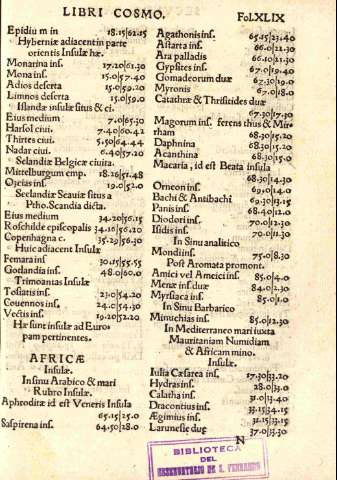 LIBRI COSMO. Fol.XLIX
Epidiu m in 18.15|62.15
Hyberniæ adiacent in parte
orientis Insulæ hæ.
Monarina ins. 17.20|61.30
Mona ins. 15.0|57.40
Adios deserta 15.0|59.20
Limnos deserta 15.0|59.0
Islandæ insulæ situs & ci.
Eius medium 7.0|65.30
Harsol ciui. 7.40|60.42
Thirtes ciui. 5.50|64.44
Nadar ciui. 6.40|57.20
Selandiæ Belgicæ ciuita.
Mittelburgum emp. 18.26|51.48
ins. 19.0|52.0
Seelandiæ Scauiæ situs a
Ptho. Scandia dicta.
Eius medium 34.20|56.15
Roschilde episcopalis 34.16|56.20
Copenhagna c. 35.29|56.30
Huic adiacent Insulæ
Femara ins 30.15|55.55
Gotlandia ins. 48.0|60.0
Trimoantas Insulæ
Tosiatis ins. 23.0|54.20
Couennos ins. 24.0|54.30
Vectis ins. 19.20|52.20
Hæ sunt insulæ ad Euro
pam pertinentes.
AFRICÆ
Insulæ.
In sinu Arabico & mari
Rubro Insulæ.
Aphroditæ id est Veneris Insula
65.15|25.0
Saspirena ins. 64.50|28.0
Agathonis ins. 65.15|23.40
Astarta ins. 66.0|21.30
Ara palladis 66.0|21.30
Gypsites ins. 67.0|19.40
Gomadeorum duæ 67.30|19.0
Myronis 67.0|18.0
Catathræ & Thrisitides duæ
67.30|17.30
Magorum ins. ferens thus & Mir
rham 68.30|15.20
Daphnina 68.30|15.20
Acanthina 68.30|15.0
Macaria, id est Beata insula
68.30|14.0
Orneon ins. 69.0|14.0
Bachi & Antibachi 69.30|13.15
Panis ins. 68.40|12.0
Diodori ins. 70.0|12.30
Isidis ins. 70.0|11.30
In Sinu analitico
Mondi ins. 75.0|8.30
Post Aromata promont.
Amici vel Ameici ins. 85.0|4.0
Menæ ins. duæ 84.0|2.30
Myrsiaca ins. 85.0|1.0
In Sinu Barbarico
Minuthias ins. 85.0|12.30
In Mediterraneo mari iuxta
Mauritaniam Numidiam
& Africam mino.
Insulæ.
Iulia Cæsarea ins. 17.30|33.20
Hydras ins. 28.0|33.0
Calatha ins. 31.0|33.40
Dracontius ins. 33.15|34.15
Ægimius ins. 31.15|33.15
Larunesiæ duæ 37.0|33.30
N
BIBLIOTECA
DEL
OBSERVATORIO DE S. FERNANDO